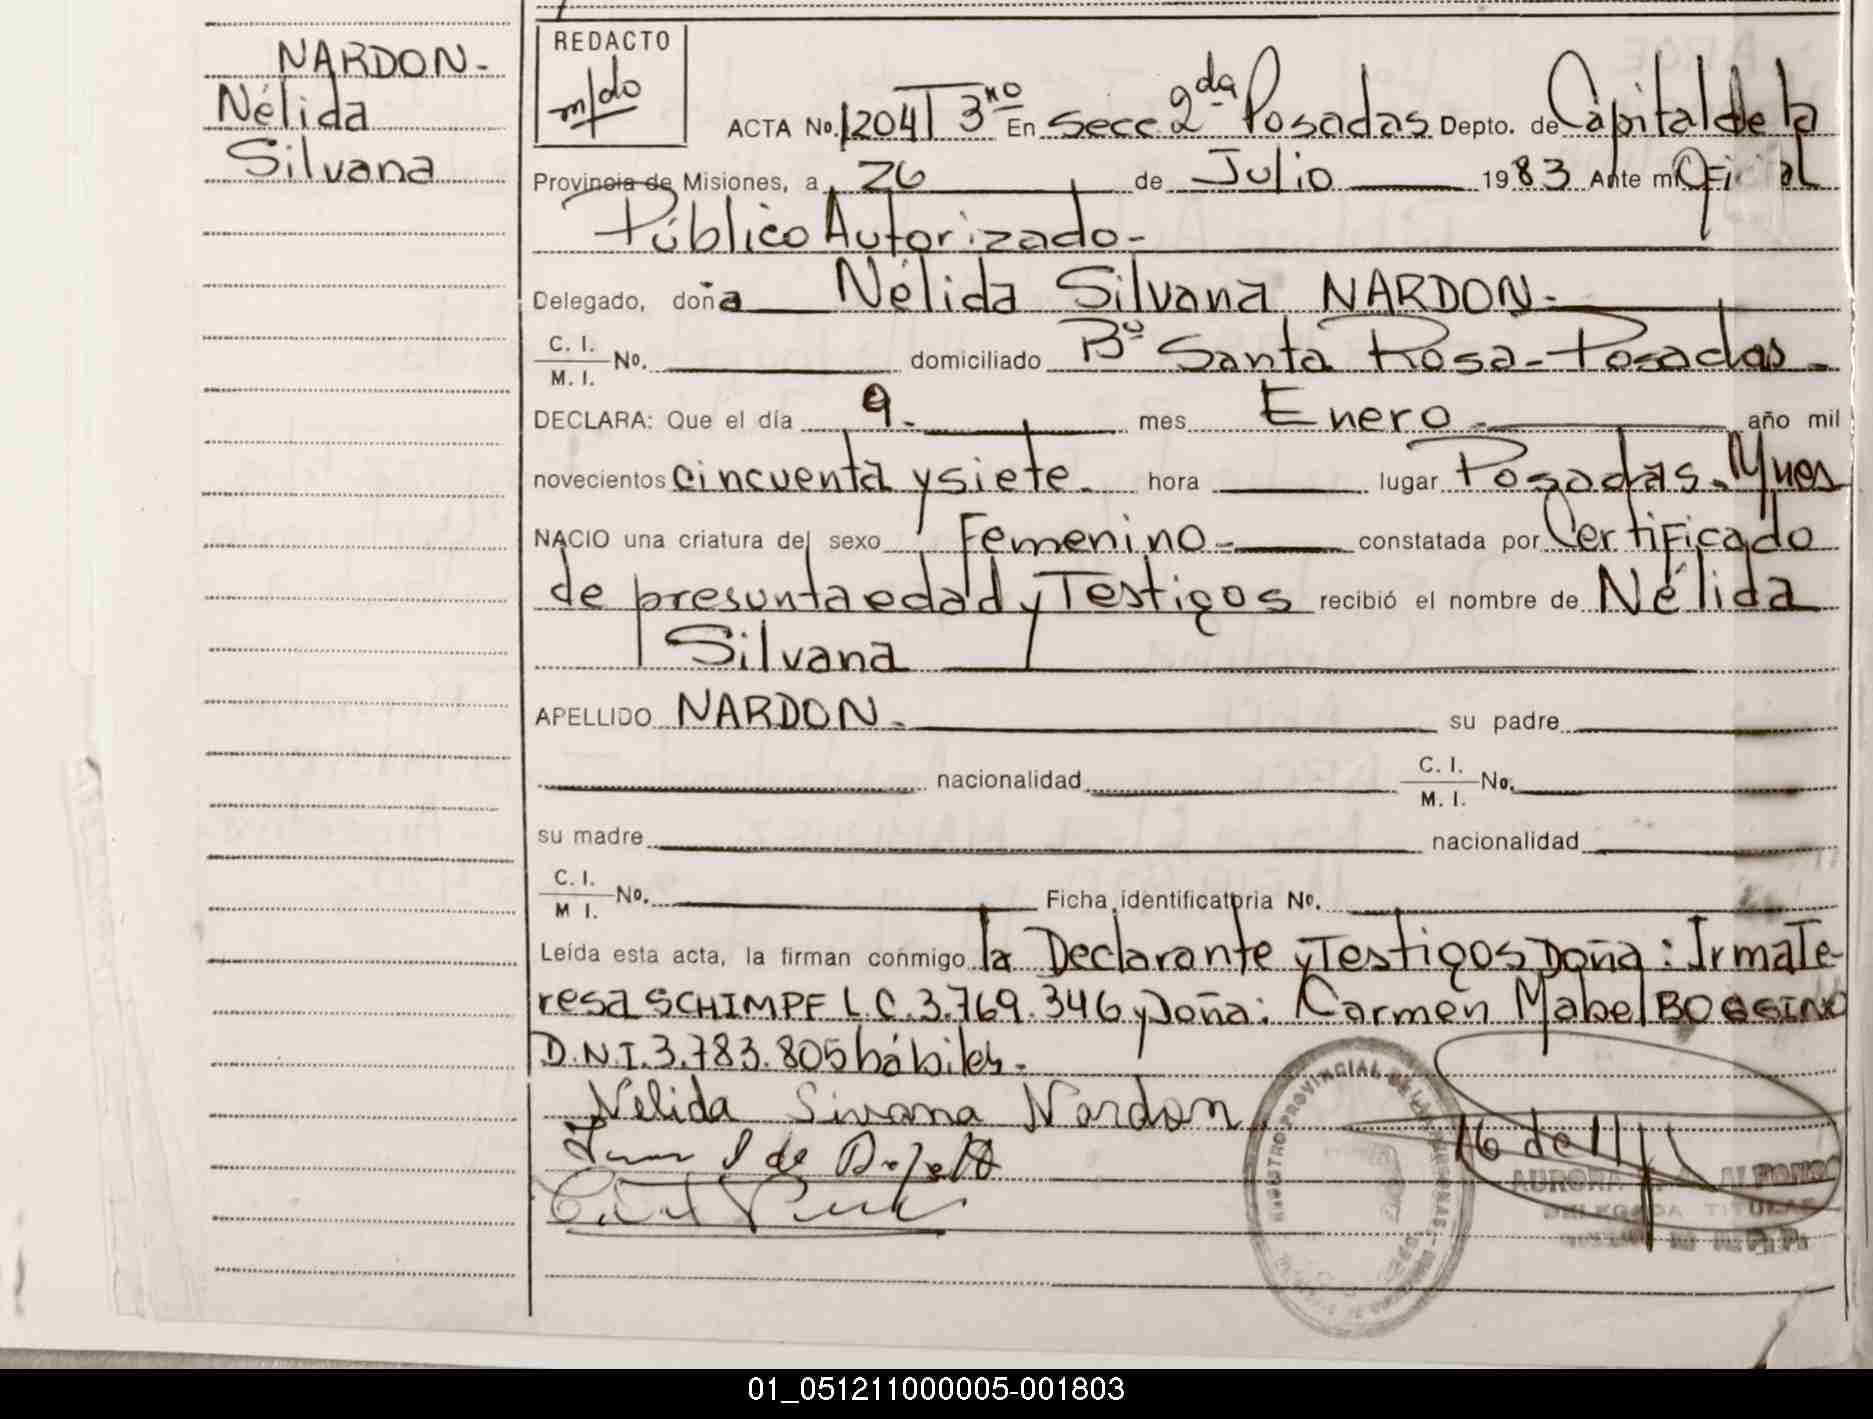 NARDON-
Nélida
Silvana
REDACTO
m/do
ACTA No. 1204 T 3ro En Secc 2da Posadas Depto. de Capital de la
Provincia de Misiones, a 26 de Julio 1983 Ante mi Oficial
Público Autorizado-
Delegado, doña Nélida Silvana NARDON-
C. I.
M. I. No. domiciliado Bº Santa Rosa-Posadas-
DECLARA: Que el día 9- mes Enero- año mil
novecientos cincuenta y siete- hora lugar Posadas-Mnes
NACIO una criatura del sexo Femenino- constatada por Certificado
de presunta edad y Testigos recibió el nombre de Nélida
Silvana
APELLIDO NARDON- su padre
nacionalidad C. I.
M. I. No.
su madre nacionalidad
C. I.
M I. No. Ficha identificatoria No.
Leída esta acta, la firman conmigo la Declarante y Testigos Doña: Irma Te-
resa SCHIMPF L.C.3.769.346 y Doña: Carmen Mabel BOGGINO
D.N.I.3.783.805 hábiles-
Nélida Sivana Nardon
REGISTRO PROVINCIAL DE LAS PERSONAS
AURORA ALFONSO
DELEGADA TITULAR
01_051211000005-001803